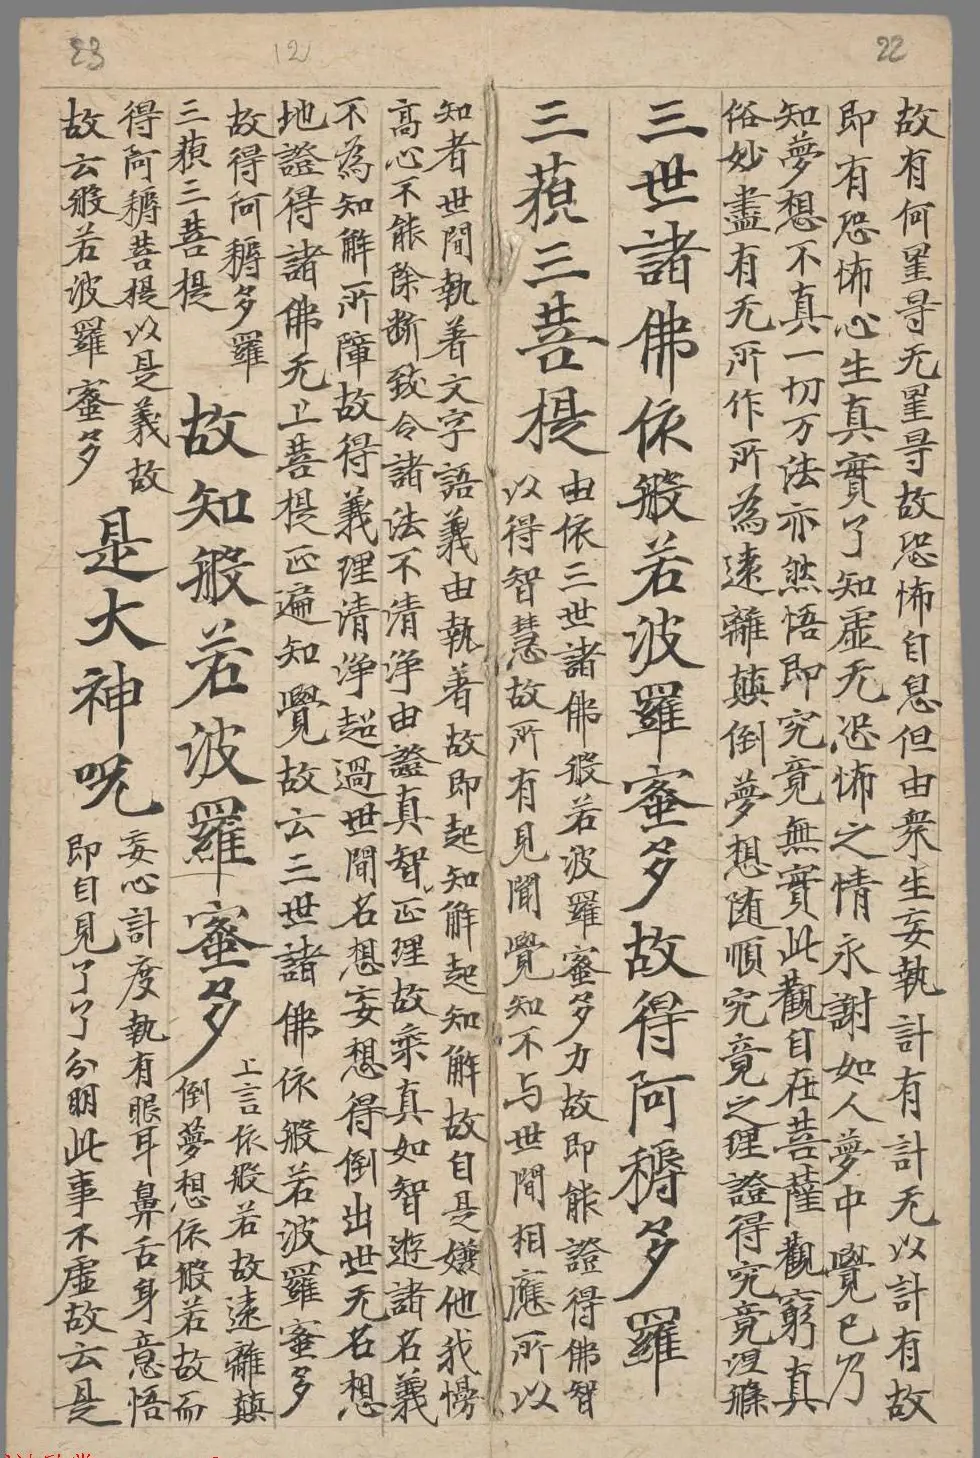 22
故有何罣㝵无罣㝵故恐怖自息但由衆生妄執計有計无以計有故
即有恐怖心生真實了知虛无恐怖之情永謝如人夢中覺已乃
知夢想不真一切万法亦然悟即究竟無實此觀自在菩薩觀窮真
俗妙盡有无所作所為遠離顛倒夢想随順究竟之理證得究竟涅槃
三世諸佛依般若波羅蜜多故得阿耨多羅
三藐三菩提
由依三世諸佛般若波羅蜜多力故即能證得佛智
以得智慧故所有見聞覺知不与世間相應所以
知者世間執著文字語義由執著故即起知解起知解故自是嫌他我慢
高心不能除断致令諸法不清净由證真智正理故乘真如智遊諸名義
不為知解所障故得義理清净超過世間名想妄想得倒出世无名想
地證得諸佛无上菩提正遍知覺故云三世諸佛依般若波羅蜜多
故得阿耨多羅
三藐三菩提
故知般若波羅蜜多
上言依般若故遠離顛
倒夢想依般若故而
得阿耨菩提以是義故
故云般若波羅蜜多
是大神呪
妄心計度執有眼耳鼻舌身意悟
即自見了了分明此事不虛故云是
(2)
23